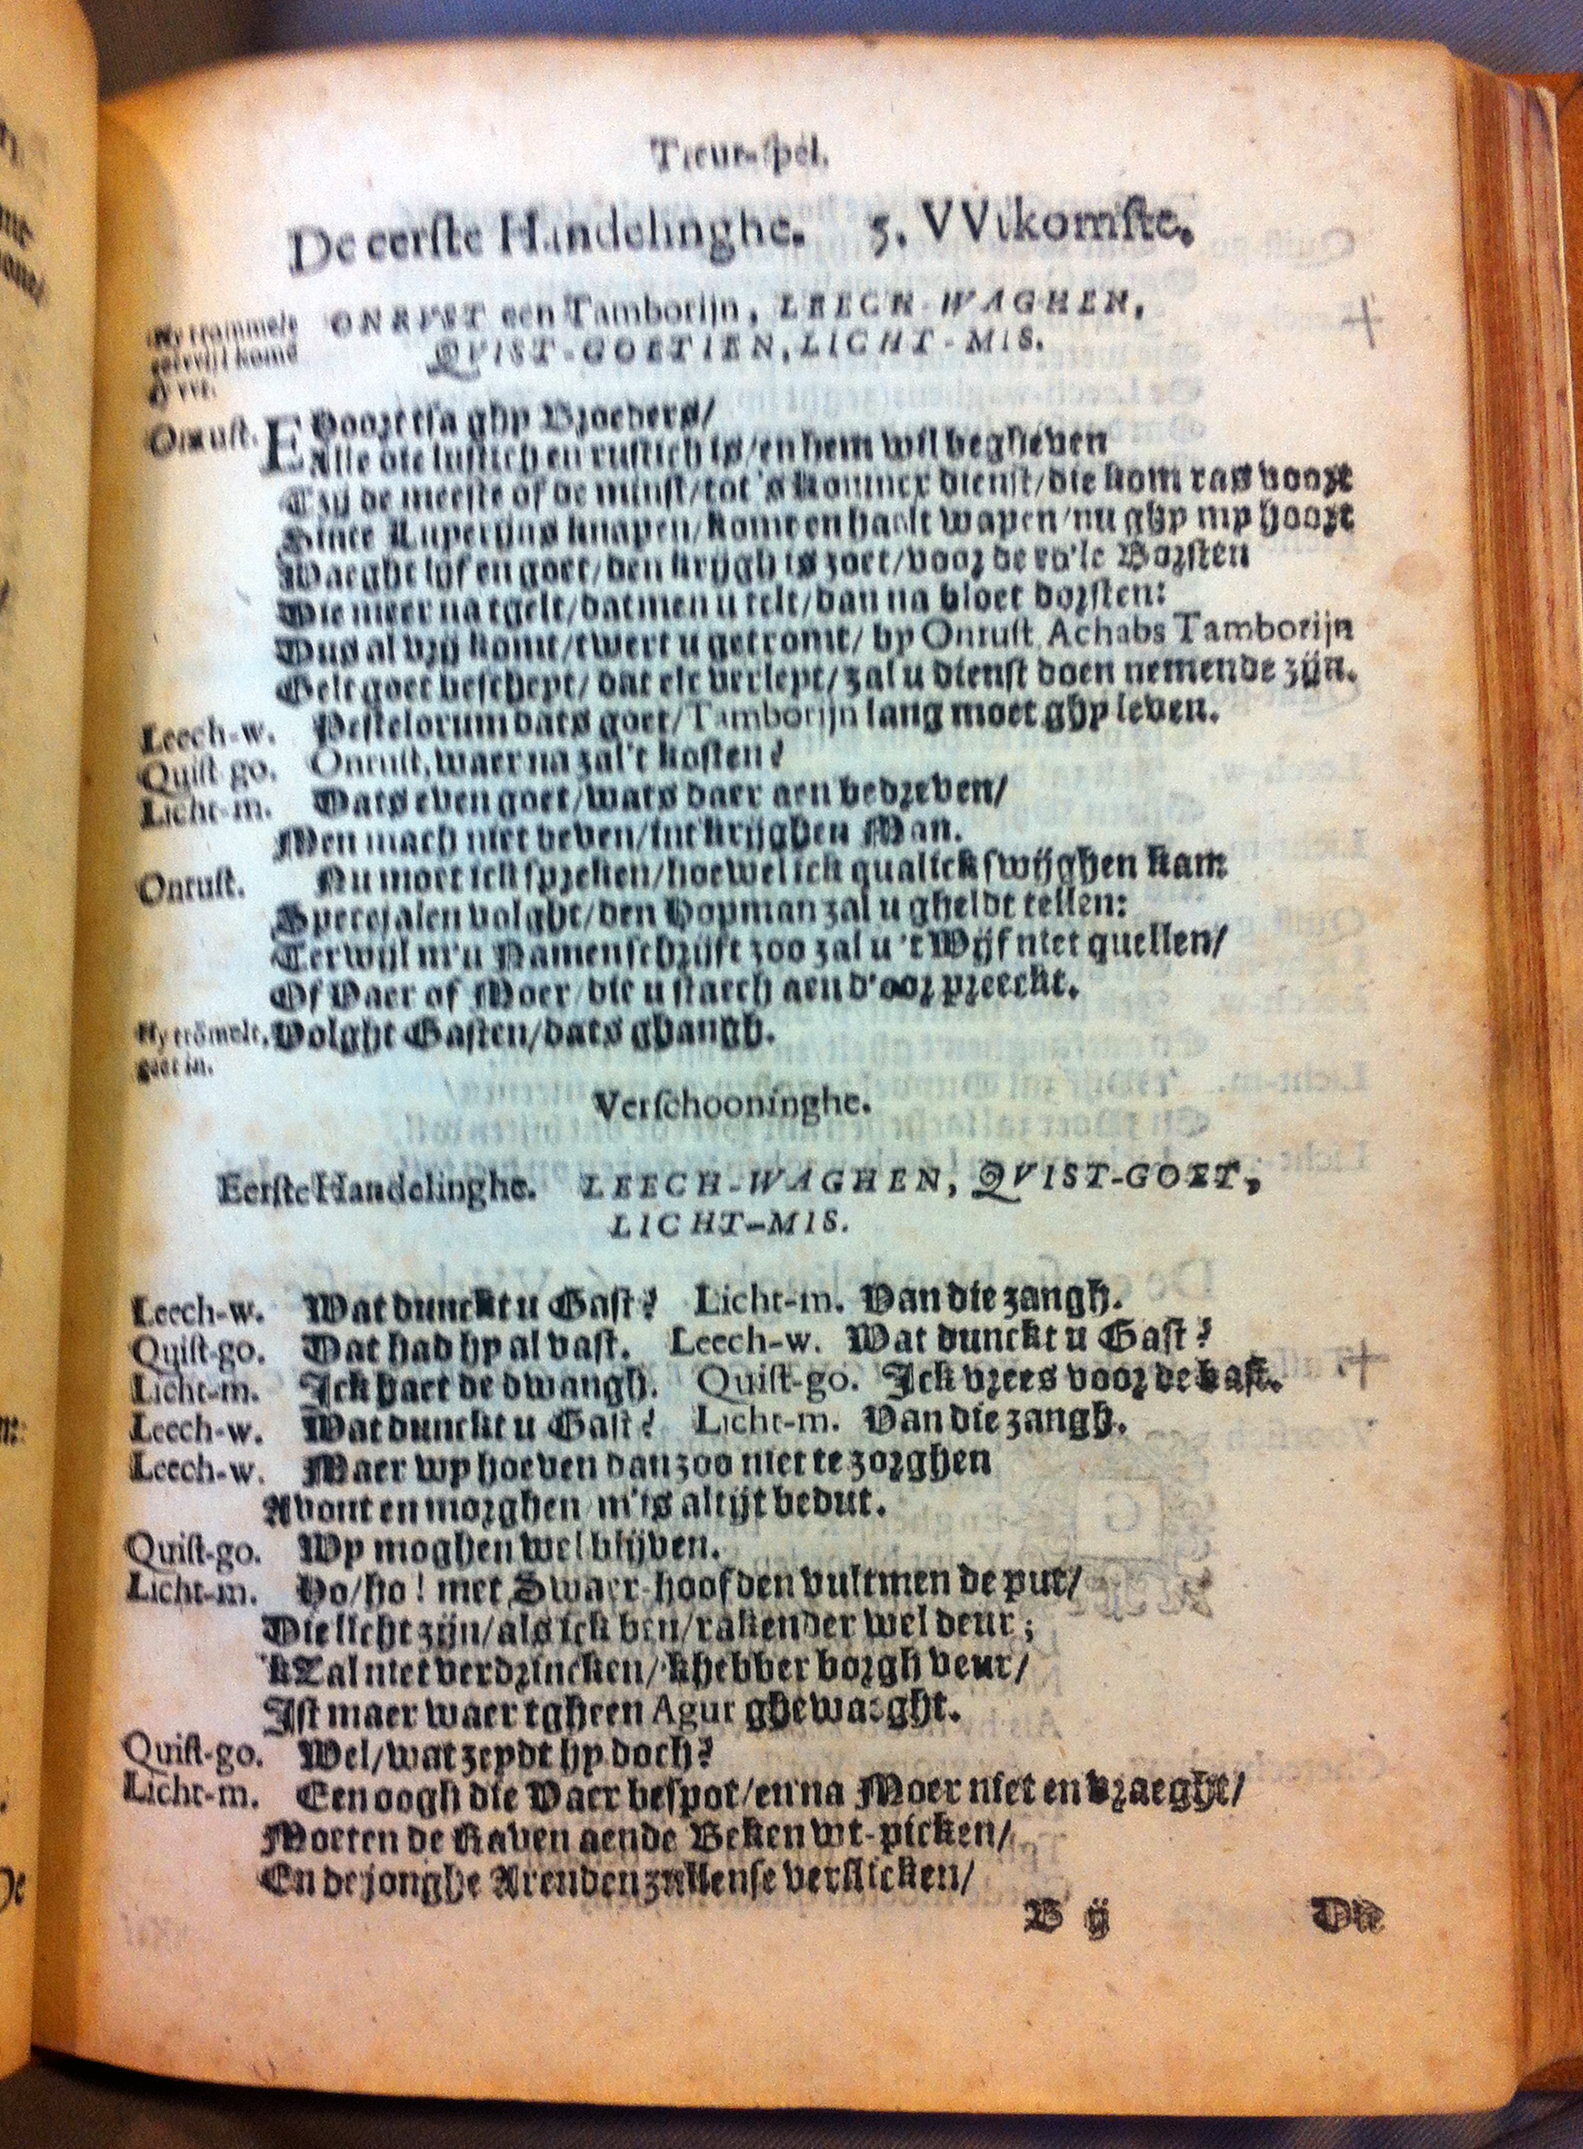 Treur-spel.
De eerste Handelinghe. 5. VVtkomste.
Hy trommele ONRVST een Tamborijn, LEECH-WAGHEN,
terwijl komd QVIST-GOETIEN, LICHT-MIS.
sy vvt.
Onrust. E Hoort tsa ghy Broeders/
Alle die lustich en rustich is/en hem wil begheven
Tzy de meeste of de minst/tot 's konincx dienst/die kom ras voort
Since Lupertijns knapen/komt en haelt wapen/nu ghy my hoort
Waeght lijf en goet/den krijgh is zoet/voor de vo'le Borsten
Die meer na tgelt/datmen u telt/dan na bloet dorsten:
Dus al vry komt/twert u getromt/ by Onrust Achabs Tamborijn
Gelt goet beschept/ dat elc verlept/zal u dienst doen nemende zijn.
Leech-w. Pestelorum dats goet/Tamborijn lang moet ghy leven.
Quist go. Onrust, waer na zal't kosten?
Licht-m. Dats even goet/wats daer aen bedreven/
Men mach niet beven/int krijghen Man.
Onrust. Nu moet ick spreken/hoewel ick qualick swijghen kam
Specejalen volght/den Hopman zal u gheldt tellen:
Terwijl m'u Namen schrijft zoo zal u 't Wijf niet quellen/
Of Vaer of Moer/die u staech aen d'oor preeckt.
Hy trõmelt, Volght Gasten/dats ghangh.
gaet in.
Verschooninghe.
Eerste Handelinghe. LEECH-WAGHEN, QVIST-GOET,
LICHT-MIS.
Leech-w. Wat dunckt u Gast? Licht-m. Van die zangh.
Quist-go. Dat had hy al vast. Leech-w. Wat dunckt u Gast?
Licht-m. Ick haet de dwangh. Quist-go. Ick vrees voor de bast.
Leech-w. Wat dunckt u Gast? Licht-m. Van die zangh.
Leech-w. Maer wy hoeven dan zoo niet te zorghen
Avont en morghen/m'is altijt bedut.
Quist-go. Wy moghen wel blijven.
Licht-m. Ho/ho! met Swaer-hoofden vultmen de put/
Die licht zijn/als ick ben/rakender wel deur;
'kZal niet verdrincken/khebber borgh veur/
Ist maer waer tgheen Agur ghewaeght.
Quist-go. Wel/wat zeydt hy doch?
Licht-m. Een oogh die Vaer bespot/en na Moer niet en vraeght/
Moeten de Raven aende Beken wt-picken/
En de jonghe Arenden zullense verslicken/
B ij Die